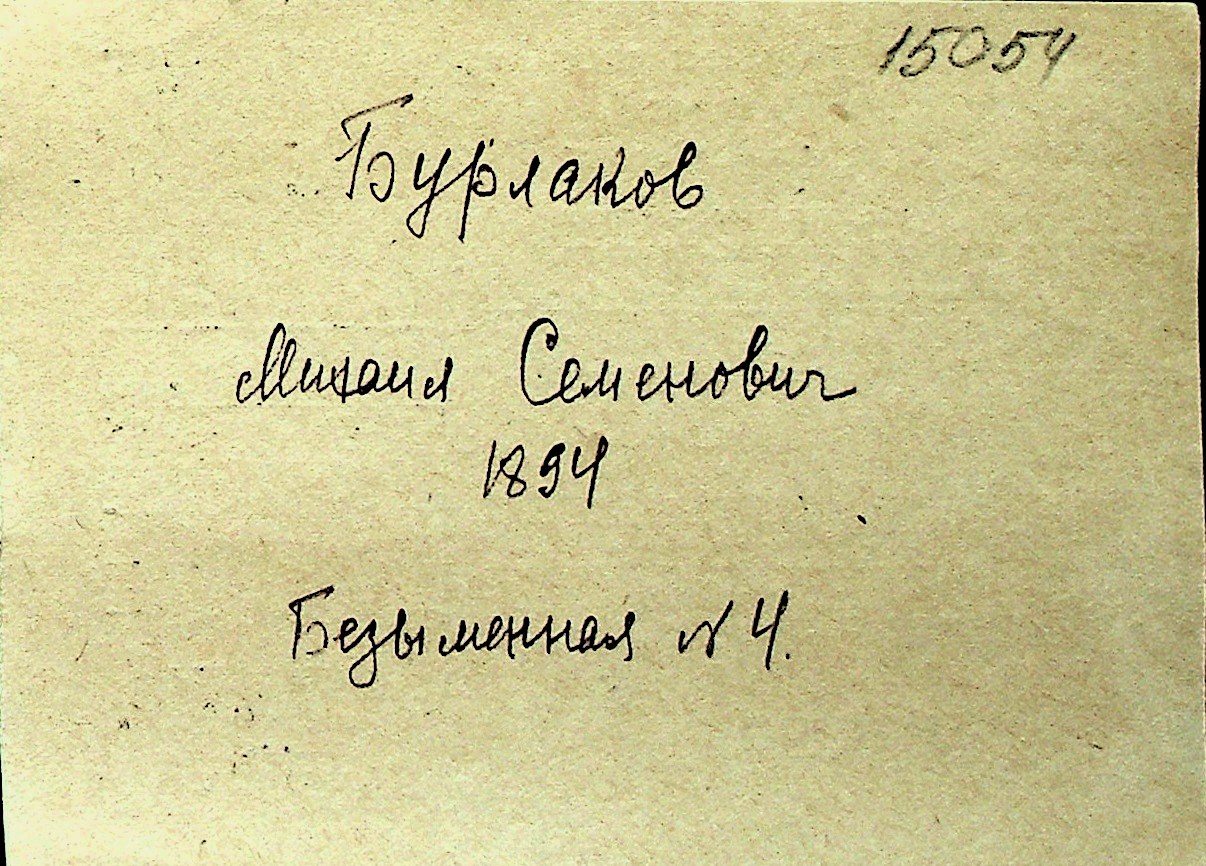 15054
Бурлаков
Михаил Семенович
1894
Безыменная № 4.